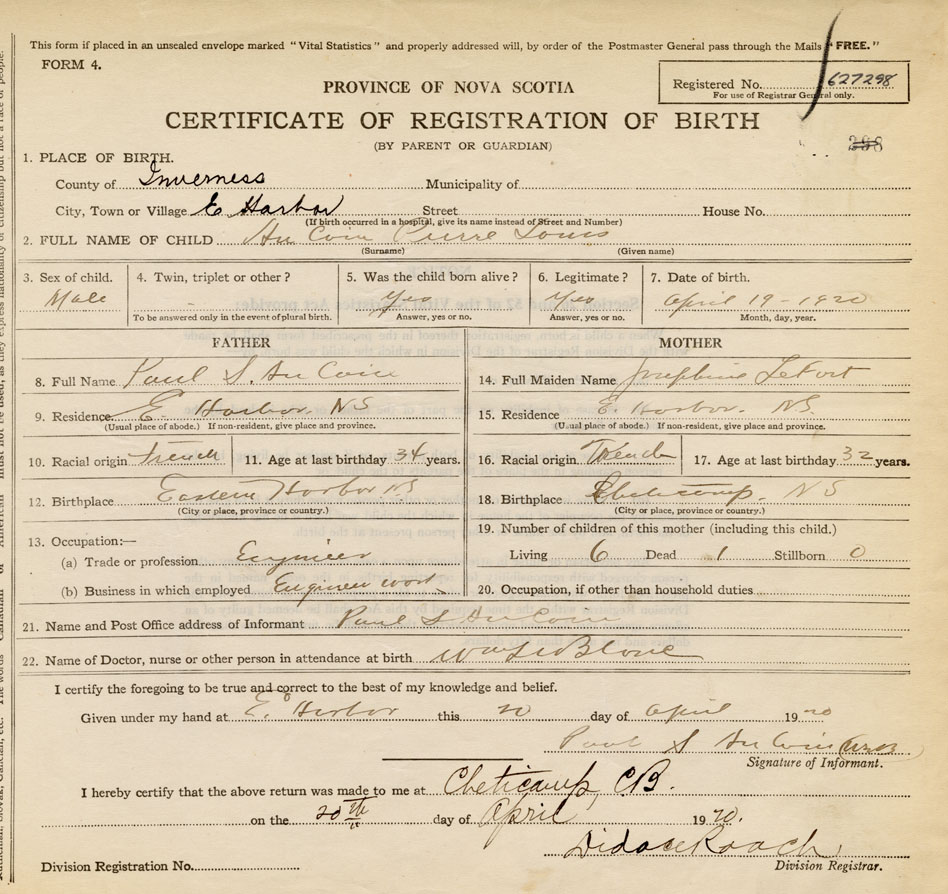 This form if placed in an unsealed envelope marked "Vital Statistics" and properly addressed will, by order of the Postmaster General pass through the Mails "FREE."
FORM 4.
Registered No. 627298
For use of Registrar General only.
PROVINCE OF NOVA SCOTIA
CERTIFICATE OF REGISTRATION OF BIRTH
(BY PARENT OR GUARDIAN)
1. PLACE OF BIRTH.
County of Inverness Municipality of
City, Town or Village E Harbor Street House No.
(If birth occurred in a hospital, give its name instead of Street and Number)
2. FULL NAME OF CHILD Au Coin Pierre Louis
(Surname) (Given name)
3. Sex of child. 4. Twin, triplet or other? 5. Was the child born alive? 6. Legitimate? 7. Date of birth.
Male Yes Yes April 19 - 1920
To be answered only in the event of plural birth. Answer, yes or no. Answer, yes or no. Month, day, year.
FATHER MOTHER
8. Full Name Paul S. Au Coin 14. Full Maiden Name Josephine LeFort
9. Residence E. Harbor NS 15. Residence E. Harbor. NS.
(Usual place of abode.) If non-resident, give place and province. (Usual place of abode.) If non-resident, give place and province.
10. Racial origin French 11. Age at last birthday 34 years. 16. Racial origin French 17. Age at last birthday 32 years.
12. Birthplace Eastern Harbor NS 18. Birthplace Cheticamp. NS
(City or place, province or country.) (City or place, province or country.)
13. Occupation:— 19. Number of children of this mother (including this child.)
(a) Trade or profession Engineer Living 6 Dead 1 Stillborn 0
(b) Business in which employed Engineer work 20. Occupation, if other than household duties
21. Name and Post Office address of Informant Paul S AuCoin
22. Name of Doctor, nurse or other person in attendance at birth
I certify the foregoing to be true and correct to the best of my knowledge and belief.
Given under my hand at E. Harbor this 20 day of April 1920
Paul S Au Coin
Signature of Informant.
I hereby certify that the above return was made to me at Cheticamp, C.B.
on the 20th day of April 1920.
Didace Roach
Division Registration No. Division Registrar.